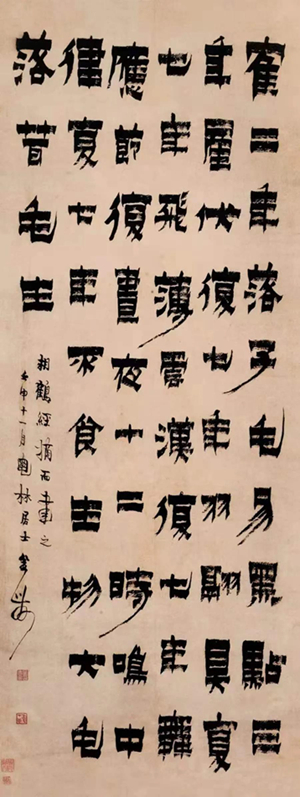 隺二年落子毛易黑點三
年產伏復七年羽翮具复
七年飛薄雲漢復七年舞
應節復晝夜十二時鳴中
律复七年不食生物大毛
落茸毛生
相鶴經摘而書之
十一月林居士